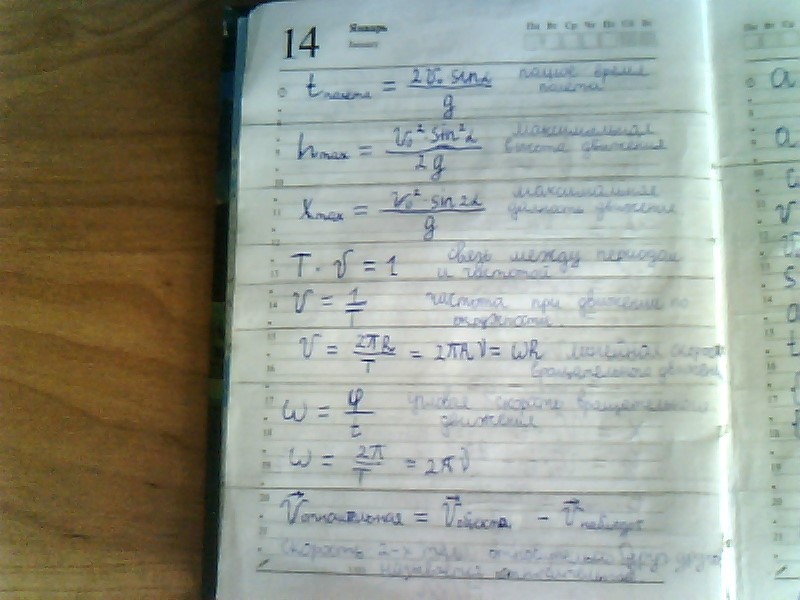 14 Январь
Пн Вт Ср Чт Пт Сб Вс
t полета = 2v₀ sinα / g полное время
полета
hmax = v₀² sin²α / 2g максимальная
высота движения
xmax = v₀² sin2α / g максимальная
дальность движения
T · ν = 1 связь между периодом
и частотой
ν = 1 / T частота при движении по
окружности
v = 2πR / T = 2πRν = ωR линейная скорость
вращательного движен
ω = φ / t угловая скорость вращательного
движения
ω = 2π / T = 2πν
V⃗относительная = V⃗объекта - V⃗наблюдат
скорость 2-х тел относительно друг друга
называется относительной